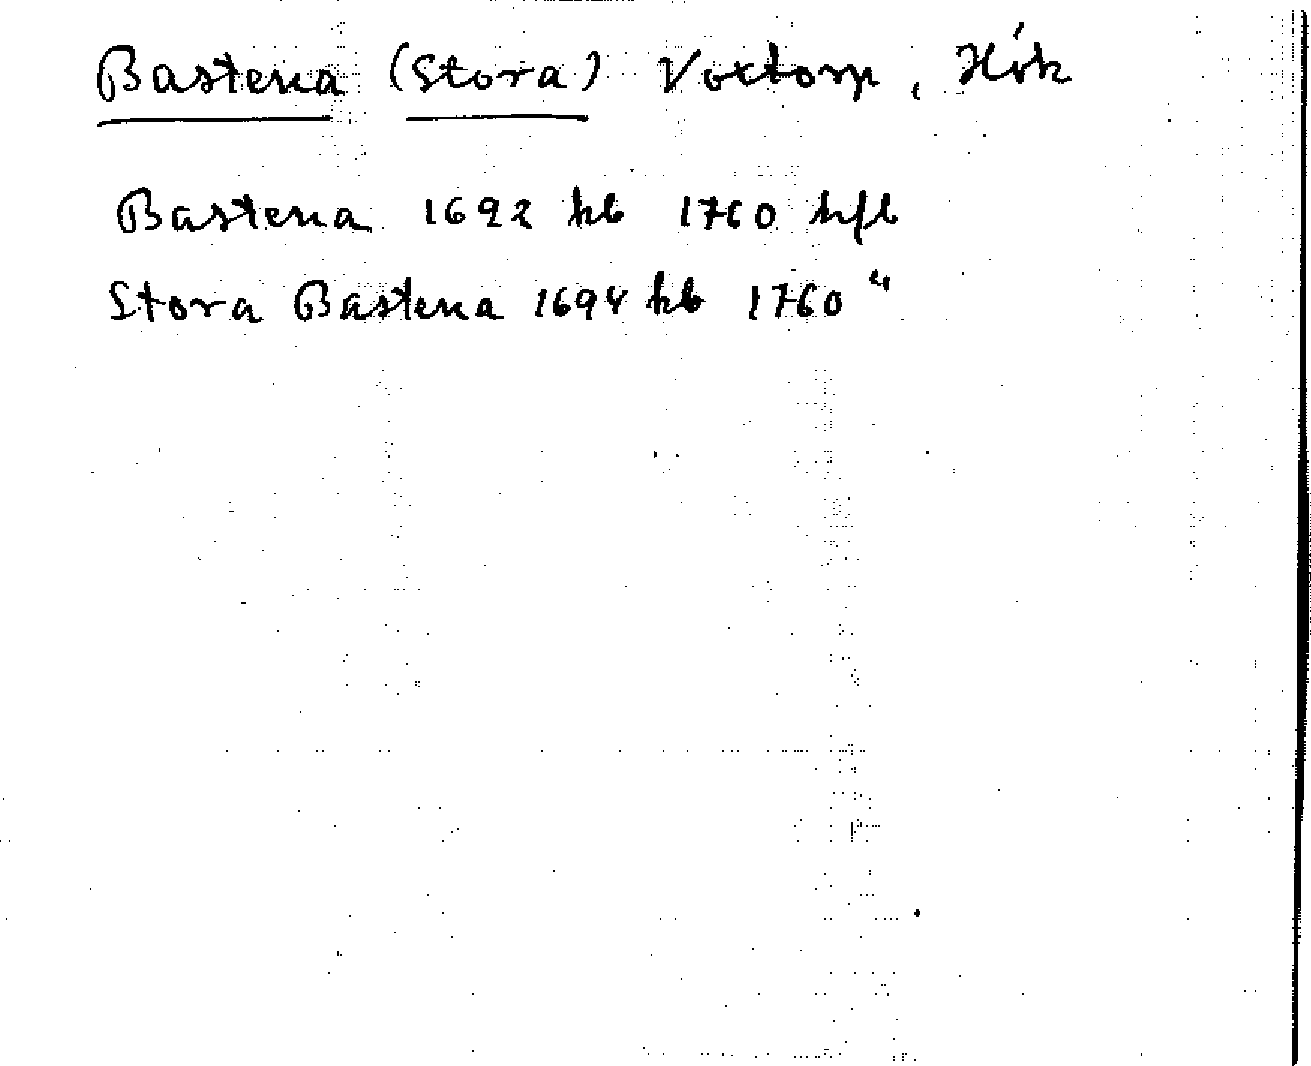 Bastena (Stora) Voxtorp, Hök
Bastena 1692 hb 1760 hfl
Stora Bastena 1694 hb 1760 "